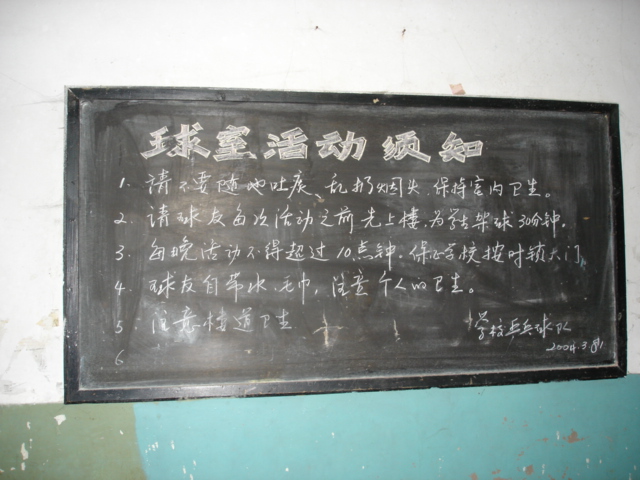 球室活动须知
1. 请不要随地吐痰、乱扔烟头, 保持室内卫生。
2. 请球友每次活动之前先上楼, 为学生带球30分钟。
3. 每晚活动不得超过10点钟. 保证学校按时锁大门
4. 球友自带水、毛巾, 注意个人的卫生。
5 注意楼道卫生
学校乒乓球队
6
2004.3.